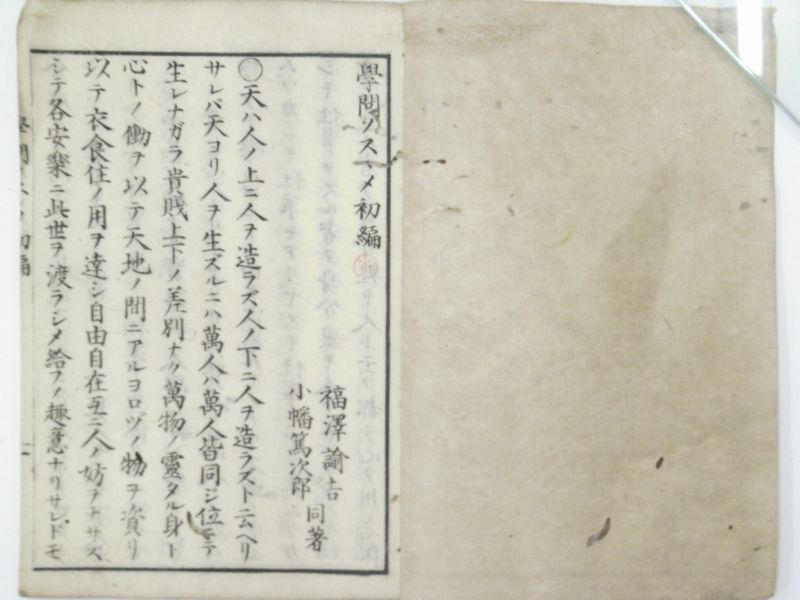 學問ノスヽメ初編
福澤諭吉
小幡篤次郎
同著
〇天ハ人ノ上ニ人ヲ造ラズ人ノ下ニ人ヲ造ラズト云ヘリ
サレバ天ヨリ人ヲ生ズルニハ萬人ハ萬人皆同ジ位ニテ
生レナガラ貴賤上下ノ差別ナク萬物ノ靈タル身ト
心トノ働ヲ以テ天地ノ間ニアルヨロヅノ物ヲ資リ
以テ衣食住ノ用ヲ達シ自由自在互ニ人ノ妨ヲナサズ
シテ各安樂ニ此世ヲ渡ラシメ給フノ趣意ナリサレドモ